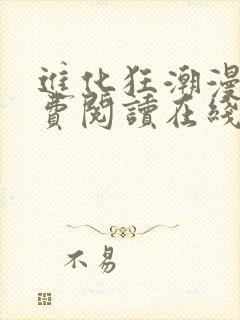 進化狂潮漫
費閱讀在綫
不易